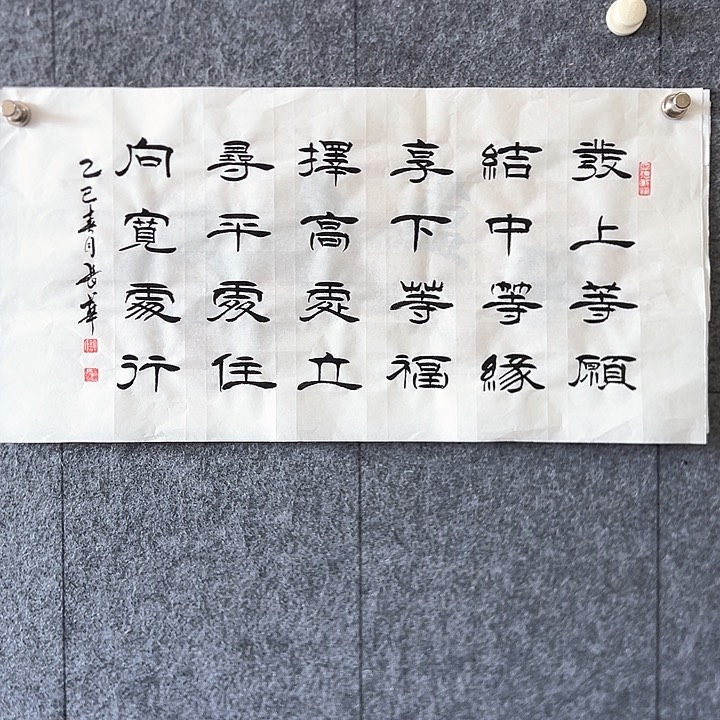 發上等願
結中等緣
享下等福
擇高處立
尋平處住
向寬處行
乙巳春月長華